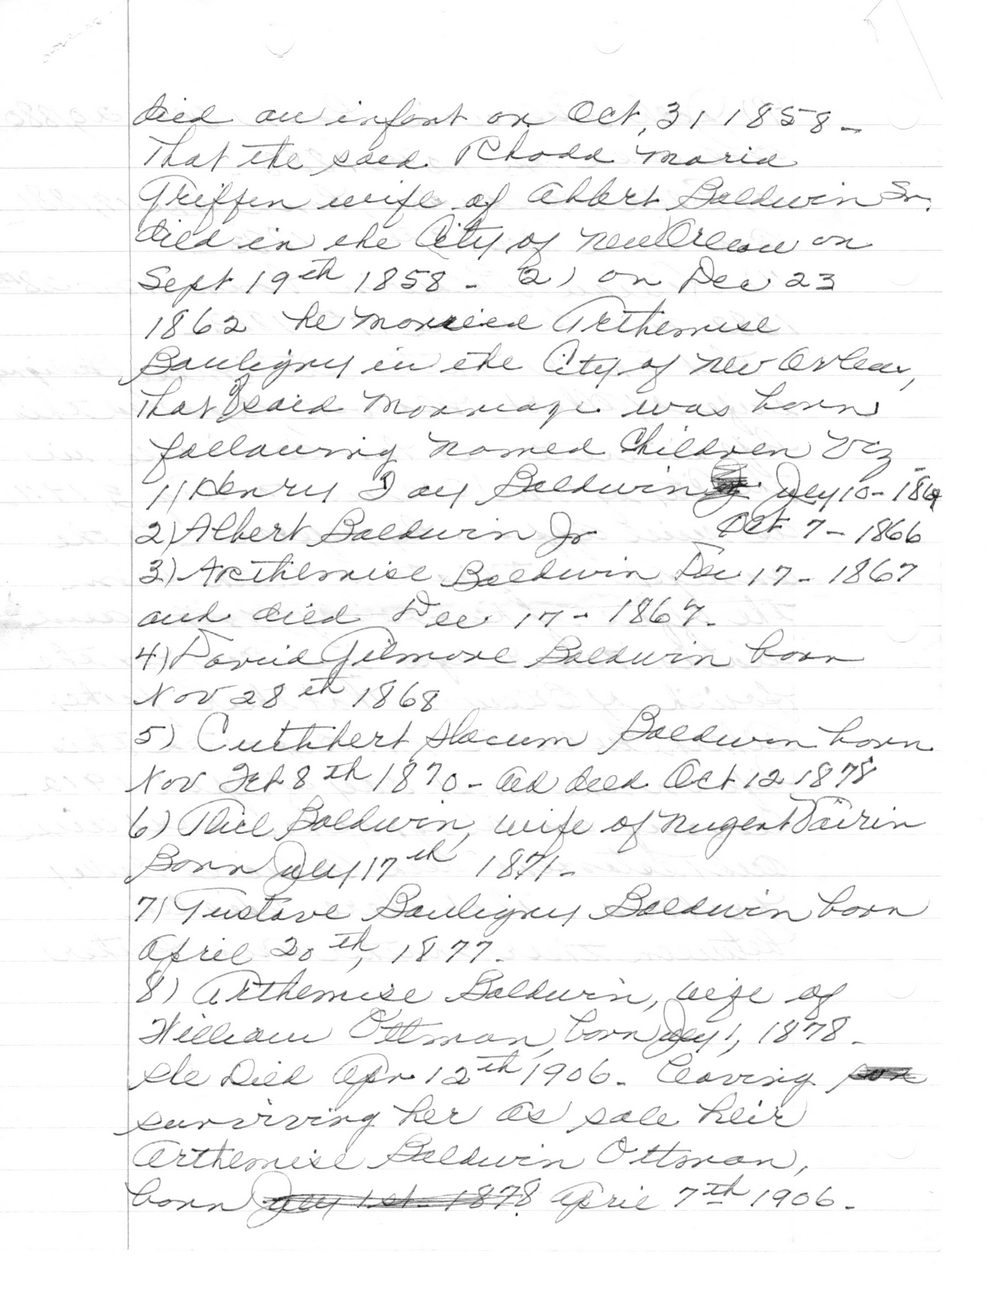 died an infant on Oct, 31 1858 -
That the said Rhoda Maria
Griffen wife of Albert Baldwin Sr.
died in the City of New Orleans on
Sept 19th 1858 - 2) on Dec 23
1862 he married Arthemise
Bouligny in the City of New Orleans,
That of said Marriage was born
following named Children viz
1) Henry Day Baldwin July 10 - 1864
2) Albert Baldwin Jr Oct 7 - 1866
3) Arthemise Baldwin Dec 17 - 1867
and died Dec 17 - 1867.
4) David Gilmore Baldwin born
Nov 28th 1868
5) Cuthbert Slocum Baldwin born
Nov Oct 8th 1870 - ad died Oct 12 1878
6) Alice Baldwin, wife of Nugent Vairin
Born July 17th 1871 -
7) Gustave Bouligny Baldwin born
April 20th, 1877.
8) Arthemise Baldwin, wife of
William Ottman, born July 1, 1878 -
She Died Apr 12th 1906 - leaving son
surviving her as sole heir
Arthemise Baldwin Ottman,
born July 1st 1878 April 7th 1906 -